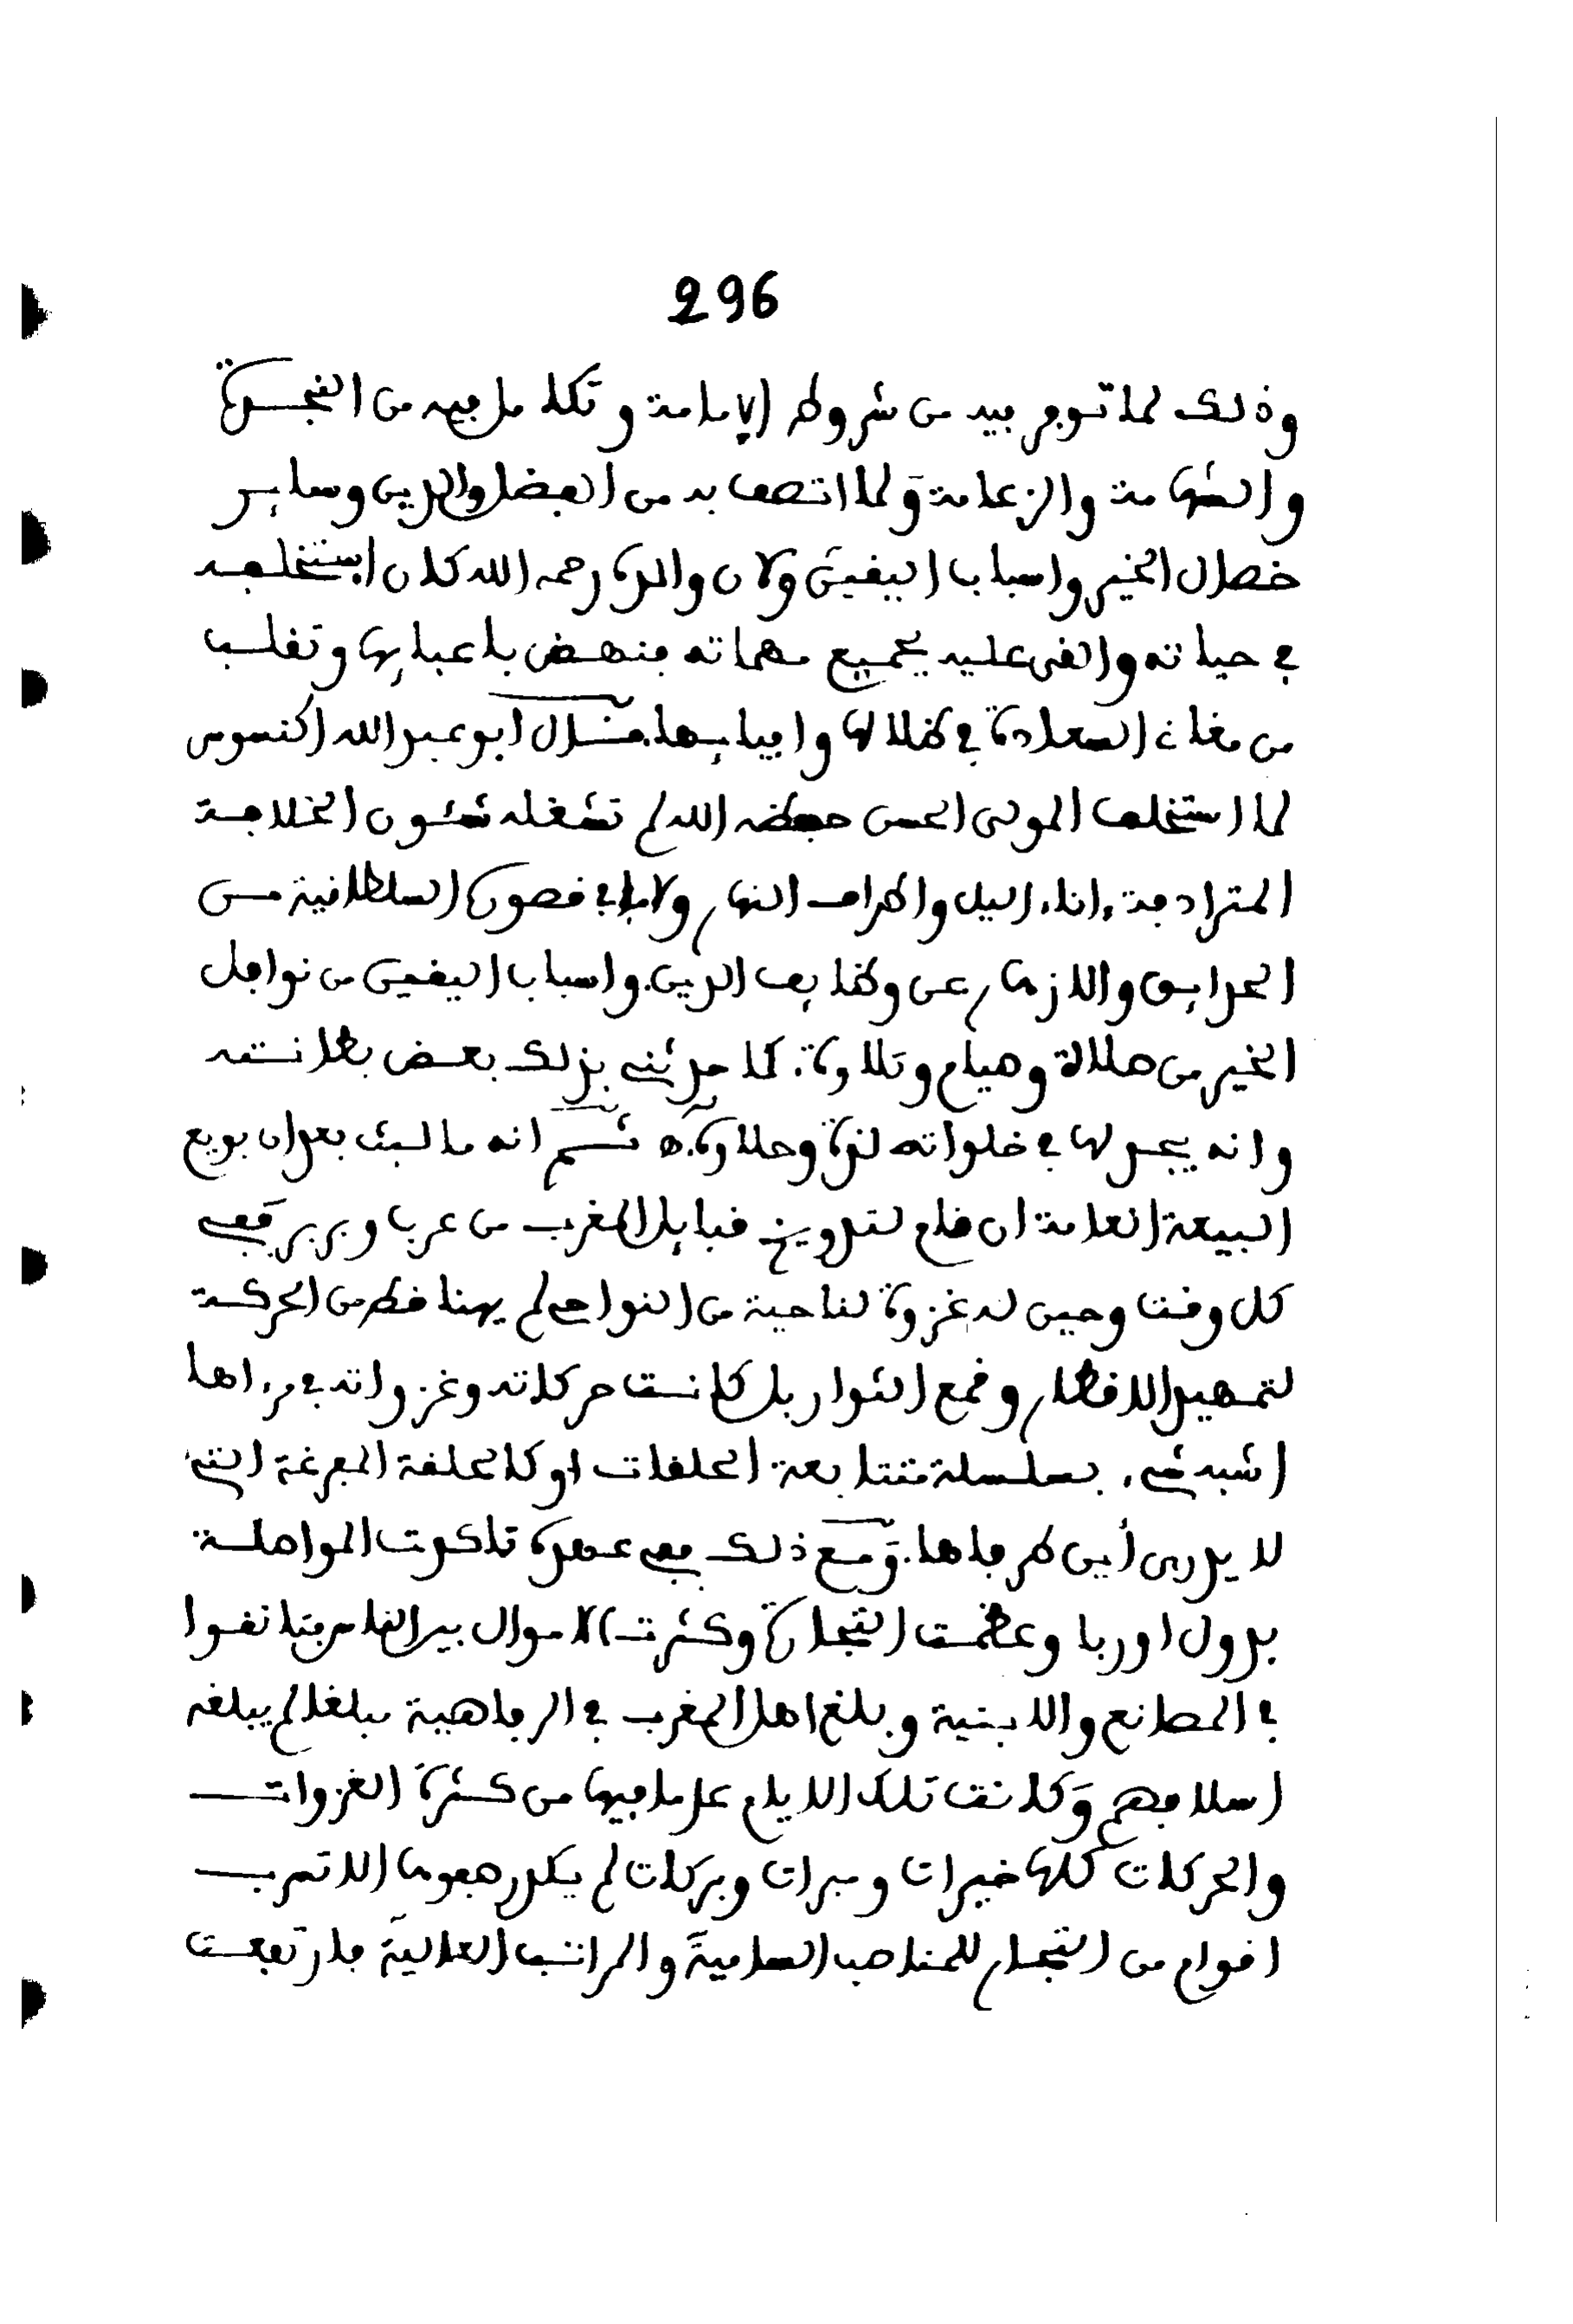 296
وذلك لما توفر فيه من شروط الإمامة وتكامل فيه من النجدة
والشهامة والزعامة ولما اتصف به من الفضل والدين وساير
خصال الخير واسباب اليقين ولان والده رحمه الله كان استخلفه
في حياته والقى عليه بجميع مهماته فنهض باعبايها وتقلب
من مغاني السعادة في ظلالها وافيايها. قال ابو عبد الله اكنسوس
لما استخلف المولى الحسن حفظه الله لم تشغله شئون الخلافة
المترادفة ءاناء اليل واطراف النهار ولا ما في قصوره السلطانية من
الحدايق والازهار عن وظايف الدين. واسباب اليقين من نوافل
الخير من صلاة وصيام وتلاوة. كما حدثني بذلك بعض بطانته
وانه يجد لها في خلواته لذة وحلاوة. ه ثم انه ما لبث بعد ان بويع
البيعة العامة ان قام لتدويخ قبايل المغرب من عرب وبربر ففي
كل وقت وحين له غزوة لناحية من النواحي لم يهنا قط من الحركة
لتمهيد الاقطار وقمع الثوار بل كانت حركاته وغزواته في
اشبه شيء بسلسلة متتابعة الحلقات او كالحلقة المفرغة التي
لا يدرى أين طرفاها. ومع ذلك ففي عهده تاكدت المواصلة
بدول اوربا وعظمت التجارة وكثرت الاموال بيد الناس فتانقوا
في المصانع والابنية وبلغ اهل المغرب في الرفاهية مبلغا لم يبلغه
اسلافهم وكانت تلك الايام على ما فيها من كثرة الغزوات
والحركات كلها خيرات ومبرات وبركات لم يكدر صفوها الا تسرب
اقوام من التجار للمناصب السامية والمراتب العالية فارتفعت